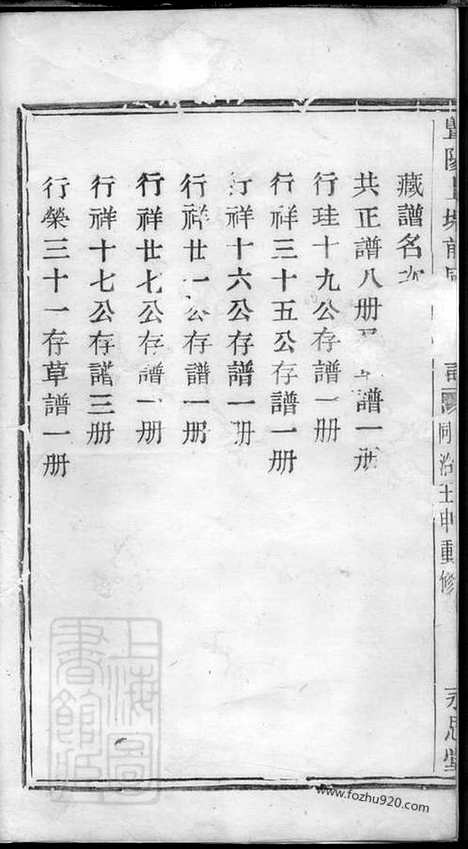 藏譜名
共正譜八册 譜一册
行珪十九公存譜一册
行祥三十五公存譜一册
行祥十六公存譜一册
行祥廿一公存譜一册
行祥廿七公存譜一册
行祥十七公存譜三册
行榮三十一存草譜一册
同治壬申重修
永思堂
上海圖書館藏
www.fozhu920.com